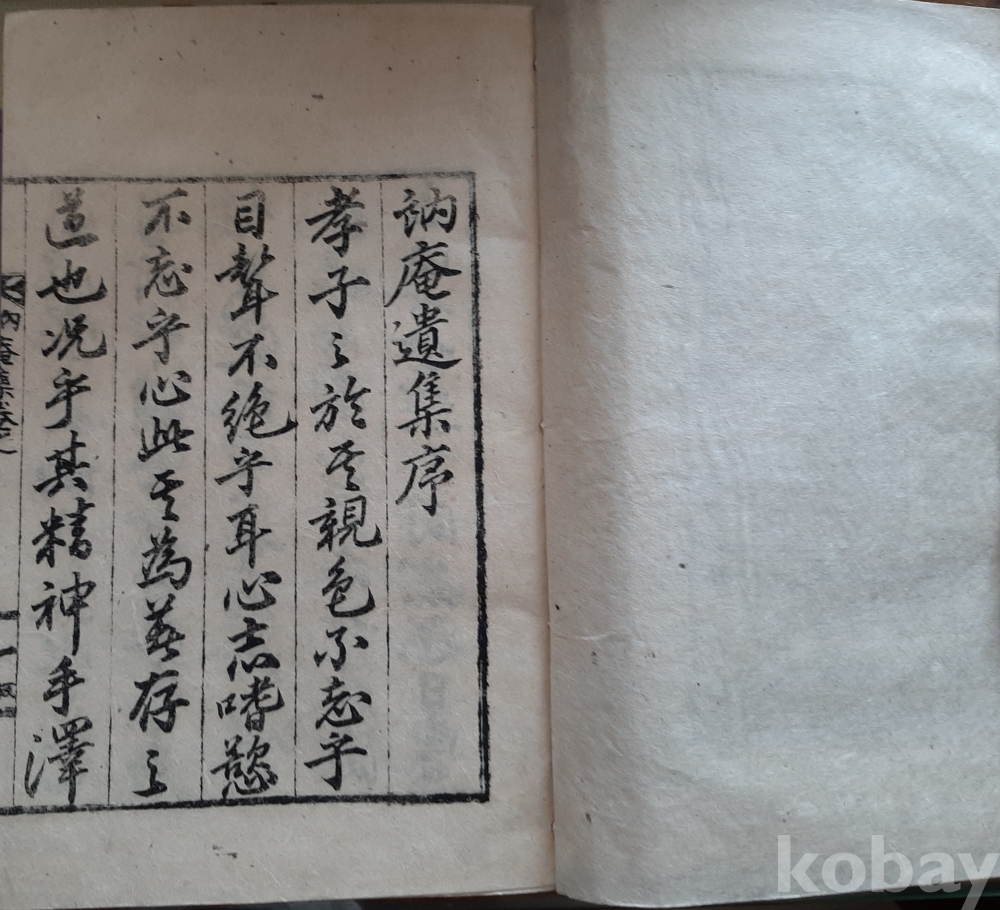 訥庵遺集序
孝子之於其親色不忘乎
目聲不絶乎耳心志嗜慾
不忘乎心此其爲著存之
道也况乎其精神手澤
kobay